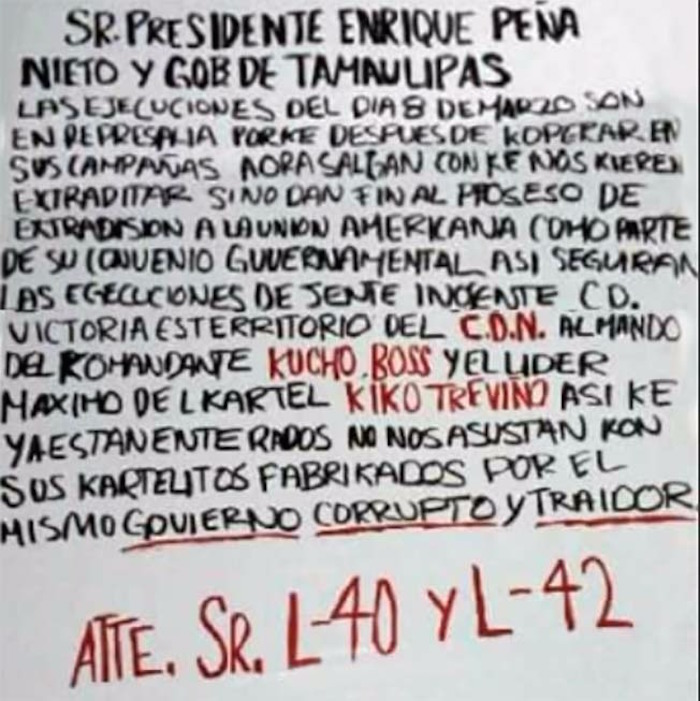 SR. PRESIDENTE ENRIQUE PEÑA
NIETO Y GOB DE TAMAULIPAS
LAS EJECUCIONES DEL DIA 8 DE MARZO SON
EN REPRESALIA PORKE DESPUES DE KOPERAR EN
SUS CAMPAÑAS AORA SALGAN CON KE NOS KIEREN
EXTRADITAR SI NO DAN FIN AL PROSESO DE
EXTRADISION A LA UNION AMERICANA COMO PARTE
DE SU CONVENIO GUVERNAMENTAL ASI SEGUIRAN
LAS EGECUCIONES DE JENTE INOSENTE CD.
VICTORIA ES TERRITORIO DEL C.D.N. AL MANDO
DEL KOMANDANTE KUCHO BOSS Y EL LIDER
MAXIMO DEL KARTEL KIKO TREVIÑO ASI KE
YA ESTAN ENTERADOS NO NOS ASUSTAN KON
SUS KARTELITOS FABRIKADOS POR EL
MISMO GOVIERNO CORRUPTO Y TRAIDOR
ATTE. SR. L-40 Y L-42